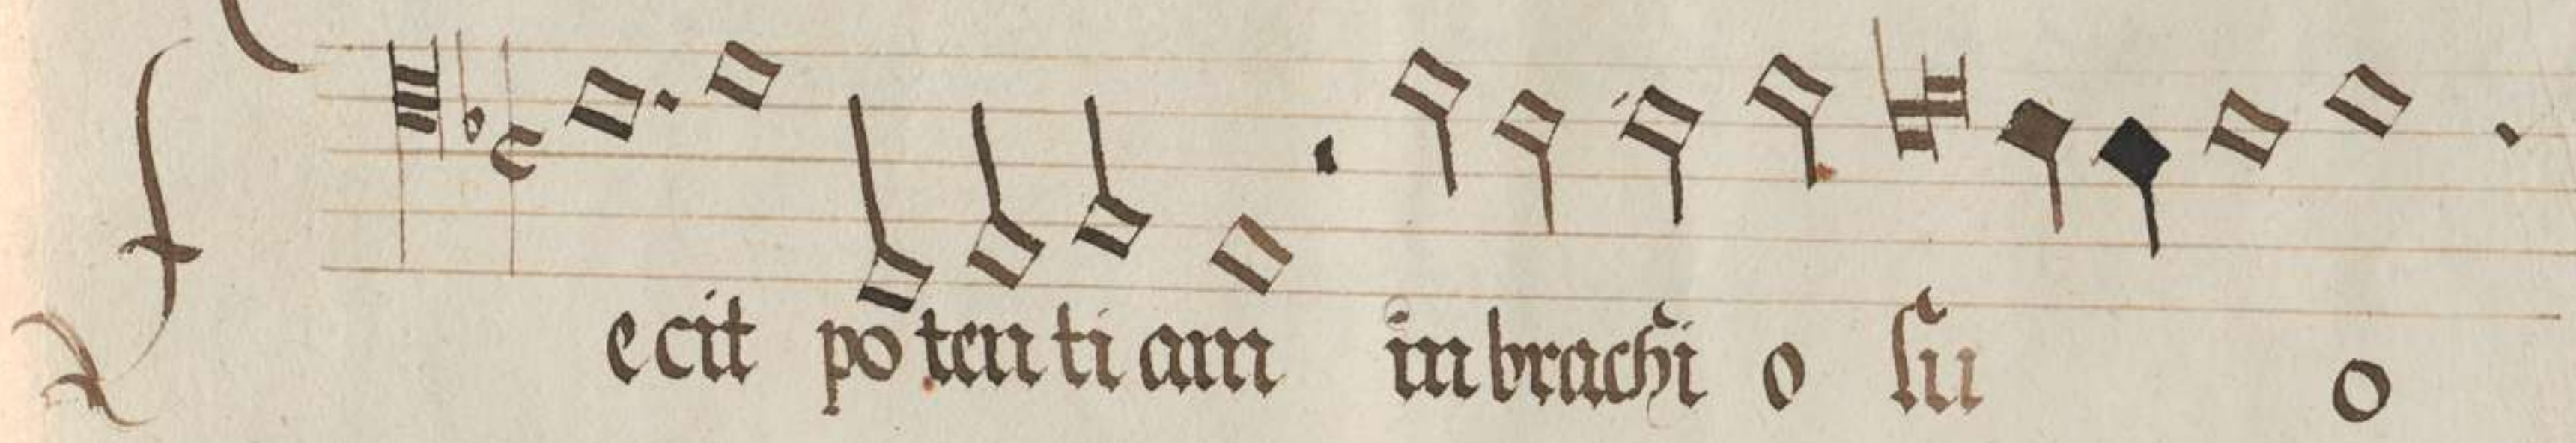 fecit potentiam in brachi o su o